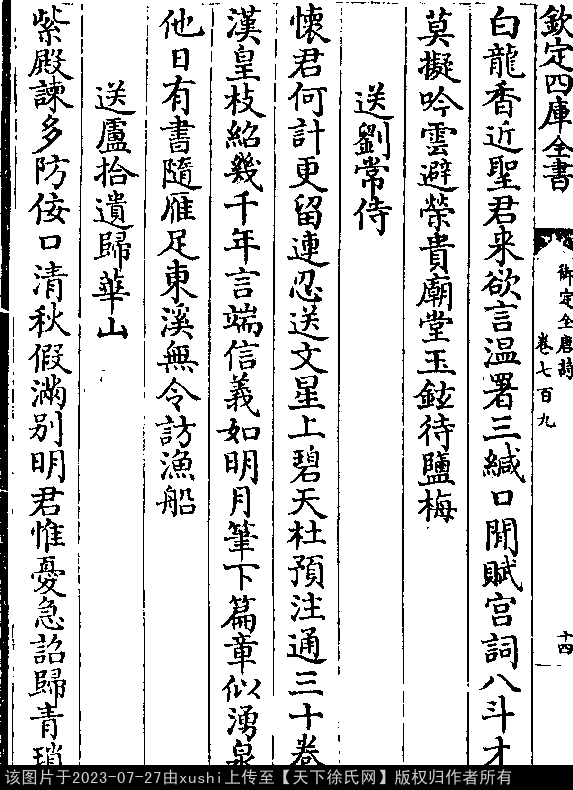 欽定四庫全書
御定全唐詩
卷七百九
十四
白龍香近聖君来欲言溫署三緘口閒賦宫詞八斗才
莫擬吟雲避榮貴廟堂玉鉉待鹽梅
送劉常侍
懐君何計更留連忍送文星上碧天杜預注通三十卷
漢皇枝紹幾千年言端信義如明月筆下篇章似湧泉
他日有書隨雁足東溪無令訪漁船
送盧拾遺歸華山
紫殿諫多防佞口清秋假滿别明君惟憂急詔歸青瑣
该图片于2023-07-27由xushi上传至【天下徐氏网】版权归作者所有